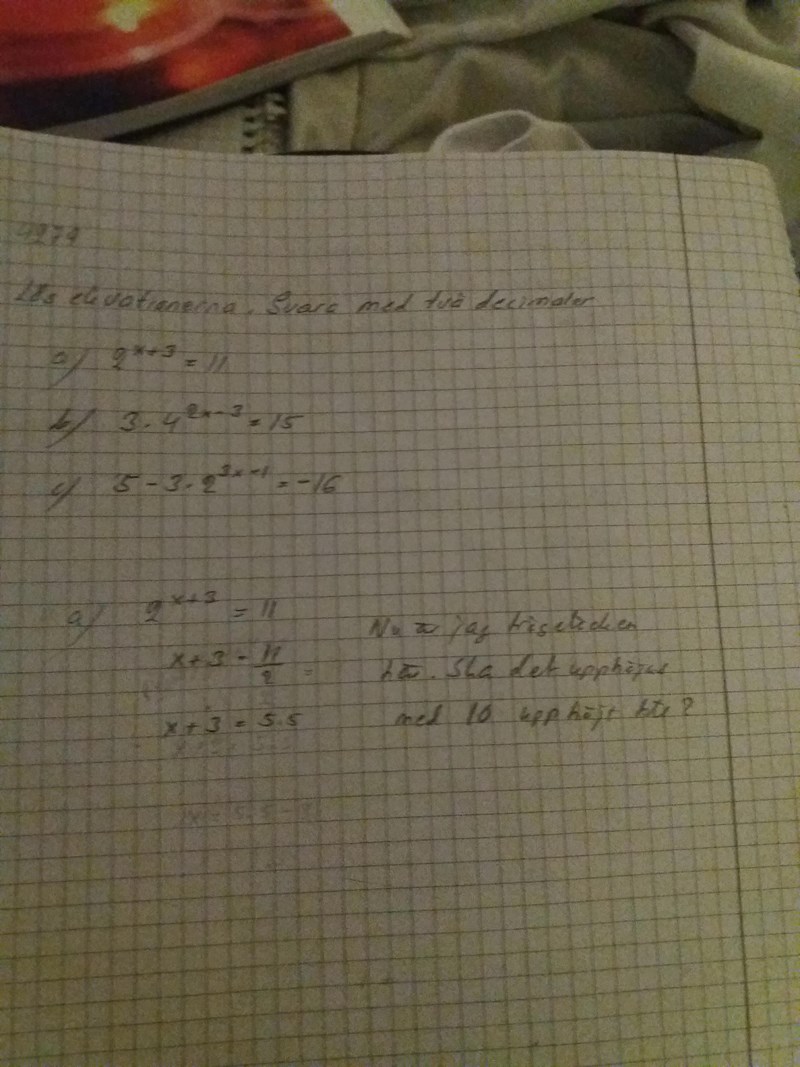 4274
Lös ekvationerna. Svara med två decimaler
a) 2^{x+3} = 11
b) 3 · 4^{2x-3} = 15
c) 5 - 3 · 2^{3x-1} = -16
a) 2^{x+3} = 11
x+3 = 11/2
x+3 = 5.5
Nu är jag
här. Ska det upphöjas
med 10 upphöjt